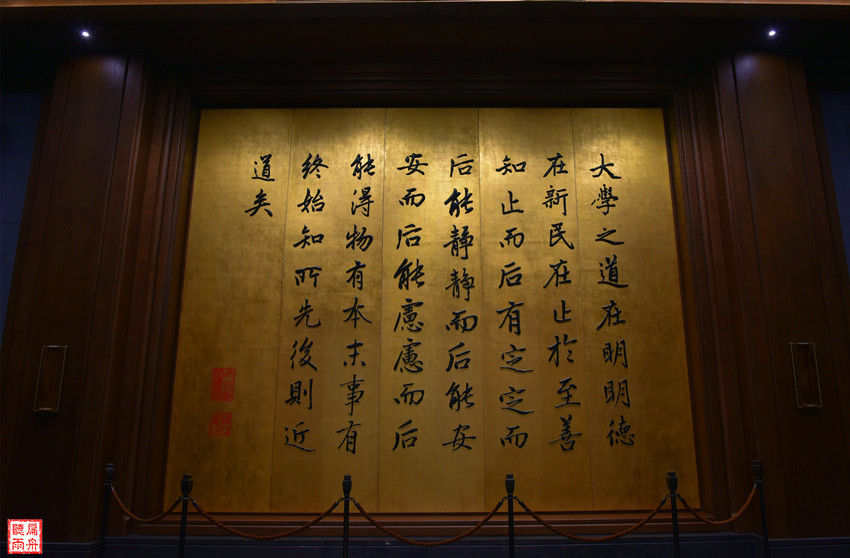 大學之道在明明德
在新民在止於至善
知止而后有定定而
后能静静而后能安
安而后能慮慮而后
能得物有本末事有
終始知所先後則近
道矣
扁舟
聽雨